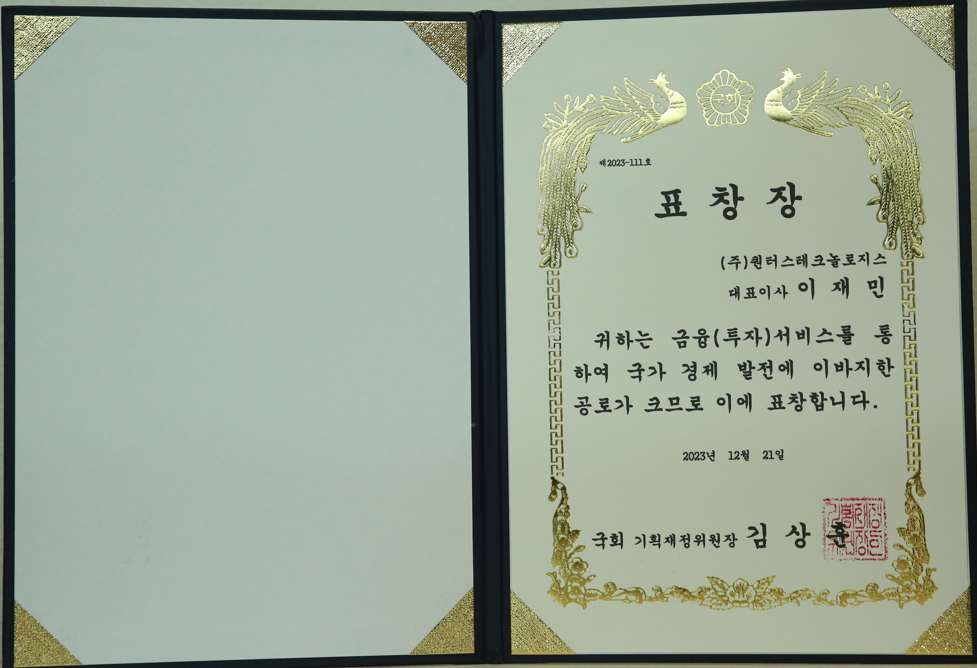 국회
제2023-111호
표 창 장
(주)원터스테크놀로지스
대표이사 이 재 민
귀하는 금융(투자)서비스를 통
하여 국가 경제 발전에 이바지한
공로가 크므로 이에 표창합니다.
2023년 12월 21일
국회 기획재정위원장 김 상 훈